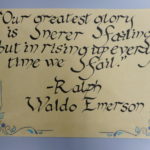 "Our greatest glory
is never falling
but in rising up every
time we fall."
-Ralph
Waldo Emerson